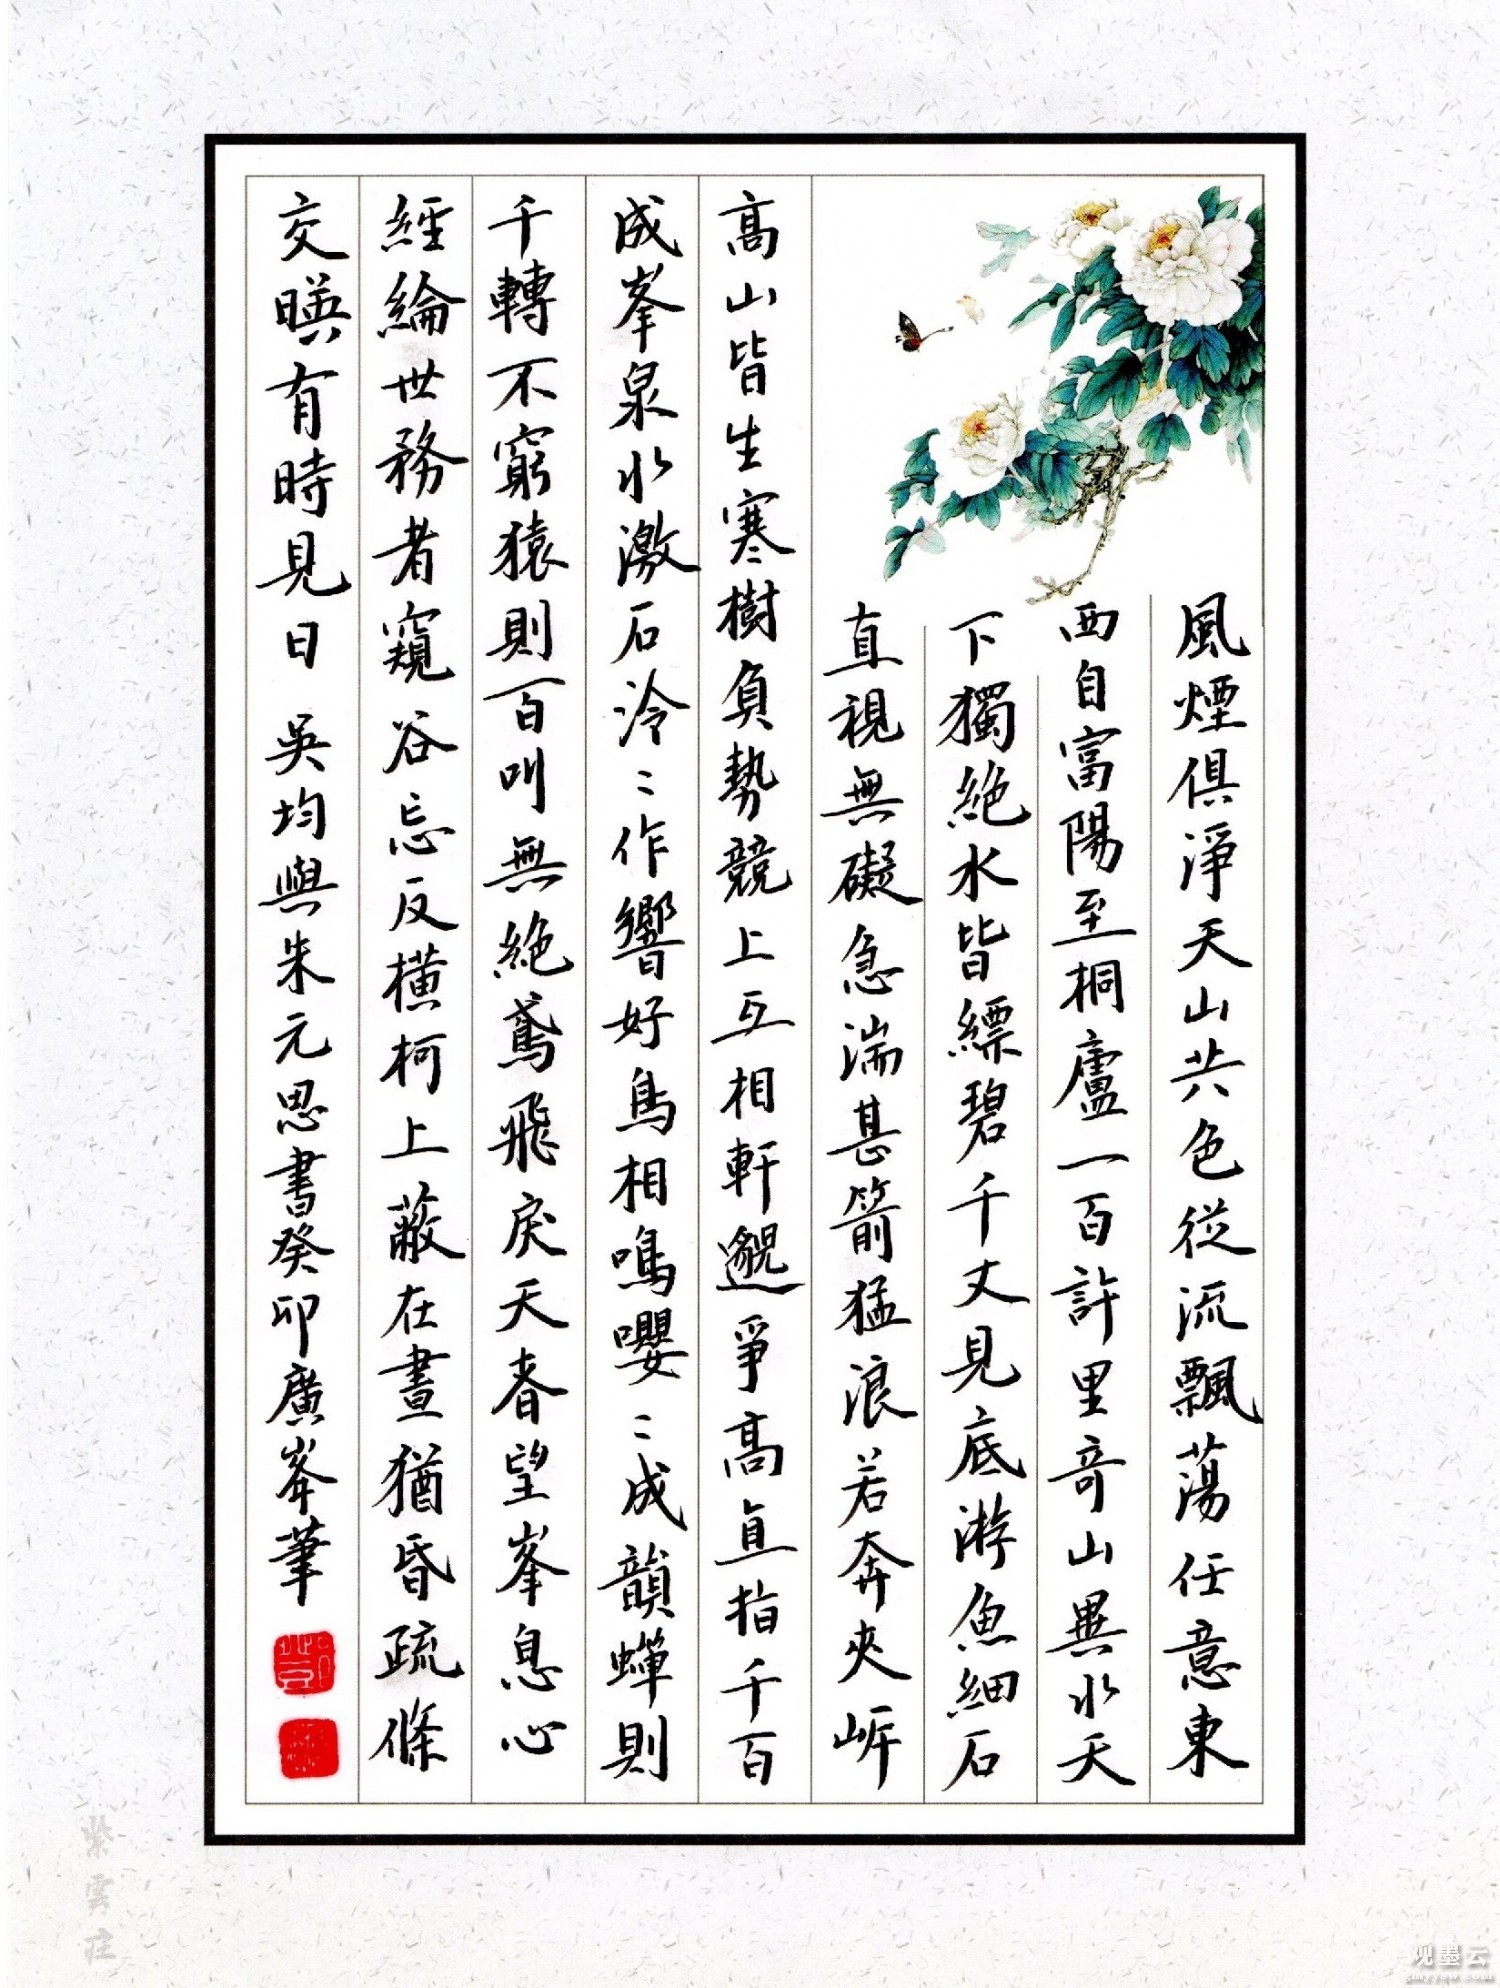 風煙俱淨天山共色從流飄蕩任意東
西自富陽至桐廬一百許里奇山異水天
下獨絶水皆縹碧千丈見底游魚細石
直視無礙急湍甚箭猛浪若奔夾岸
高山皆生寒樹負勢競上互相軒邈爭高直指千百
成峯泉水激石泠〻作響好鳥相鳴嚶〻成韻蟬則
千轉不窮猿則百叫無絶鳶飛戾天者望峯息心
經綸世務者窺谷忘反橫柯上蔽在晝猶昏疏條
交暎有時見日 吳均與朱元思書癸卯廣峯筆
紫雲莊
观墨云